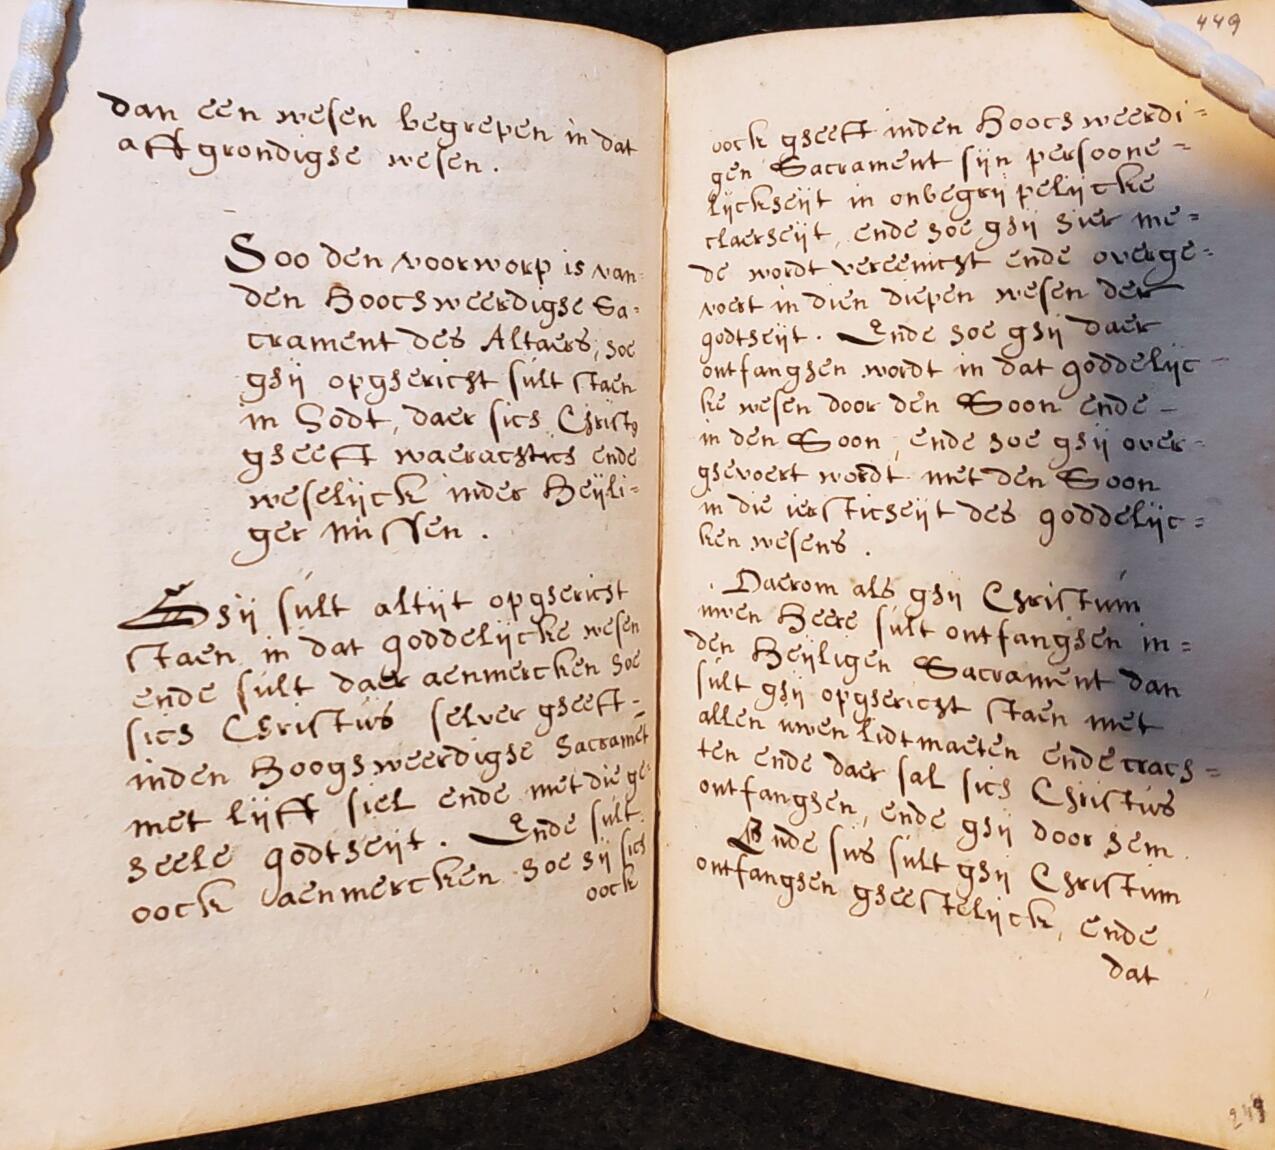 dan een wesen begrepen in dat
affgrondighe wesen.
Soo den voorworp is van-
den Hoochweerdighe Sa-
crament des Altaers, hoe
ghij opghericht sult staen
in Godt, daer sich Christus
gheeft waerachtich ende
weselijck inder Heijli-
ger Missen.
Ghij sult altijt opghericht
staen in dat goddelijcke wesen
ende sult daer aenmercken hoe
sich Christus selver gheeft-
inden Hooghweerdighe Sacramet
met lijff siel ende met die ge-
heele godtheijt. Ende sult
oock aenmercken hoe hij sich
oock
449
oock gheeft inden Hoochweerdi-
gen Sacrament sijn persoone-
lijckheijt in onbegrijpelijcke
claerheijt, ende hoe ghij hier me-
de wordt vereenicht ende overge-
voert in dien diepen wesen der
godtheijt. Ende hoe ghij daer
ontfanghen wordt in dat goddelijc-
ke wesen door den Soon ende-
in den Soon, ende hoe ghij over-
ghevoert wordt met den Soon
in die iersticheijt des goddelijc-
ken wesens.
Daerom als ghij Christum
uwen Heere sult ontfanghen in-
den Heijligen Sacrament dan
sult ghij opghericht staen met
allen uwen lidtmaeten ende crach-
ten ende daer sal sich Christus
ontfanghen, ende ghij door hem.
Ende sus sult ghij Christum
ontfanghen gheestelijck, ende
dat